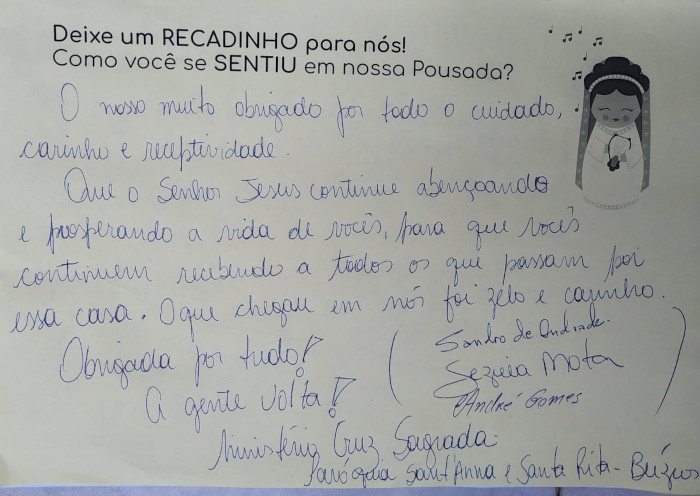 Deixe um RECADINHO para nós!
Como você se SENTIU em nossa Pousada?
O nosso muito obrigado por todo o cuidado,
carinho e receptividade.
Que o Senhor Jesus continue abençoando
e prosperando a vida de vocês, para que vocês
continuem recebendo a todos os que passam por
essa casa. O que chegou em nós foi zelo e carinho.
Obrigada por tudo!
A gente volta!
Sandro de Andrade.
Mota
André Gomes
Ministério Cruz Sagrada.
Paróquia Sant'Anna e Santa Rita - Búzios